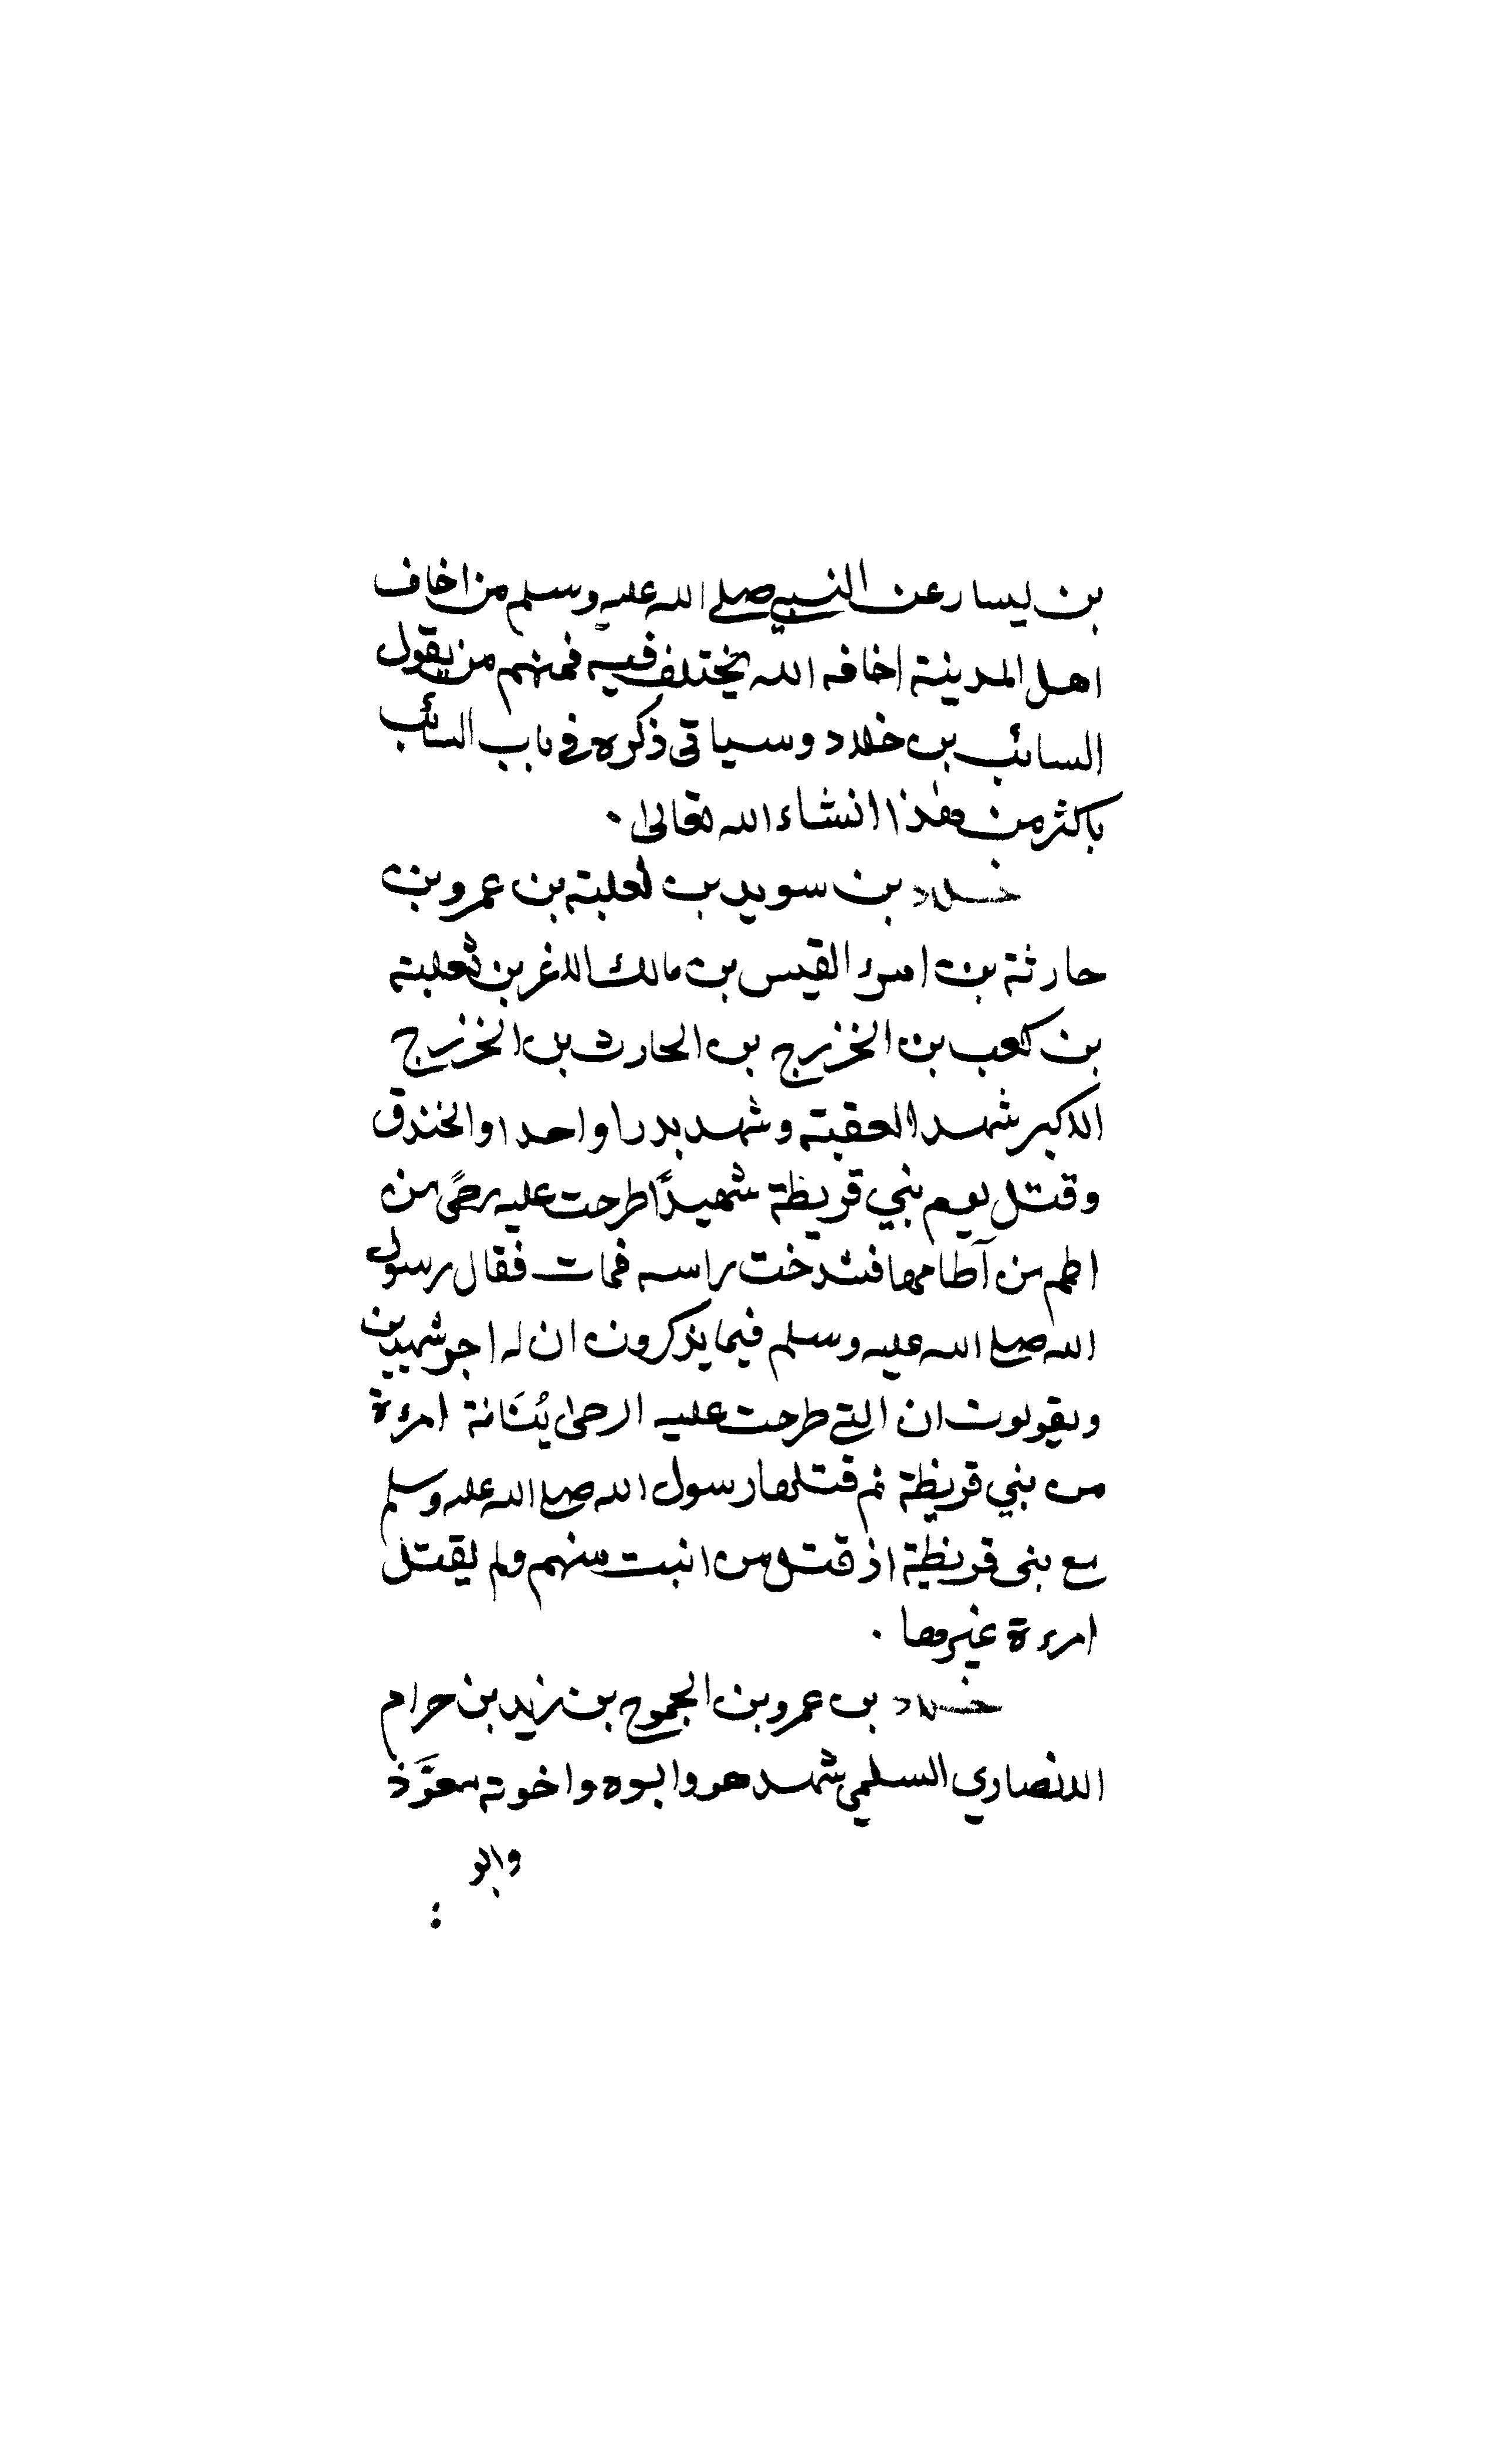 بن يسار عن النبي صلى الله عليه وسلم من اخاف
اهل المدينة اخافه الله يختلف فيه فمنهم من يقول
السائب بن خلاد وسياتي ذكره في باب السائب
باكثر من هذا انشاء الله تعالى .
خلاد بن سويد بن ثعلبة بن عمرو بن
حارثة بن امرء القيس بن مالك الاغر بن ثعلبة
بن كعب بن الخزرج بن الحارث بن الخزرج
الاكبر شهد العقبة وشهد بدرا واحدا والخندق
وقتل يوم بني قريظة شهيدًا طرحت عليه رحًى من
اطم من آطامها فشدخت راسه فمات فقال رسول
الله صلى الله عليه وسلم فيما يذكرون ان له اجر شهيدين
ويقولون ان التي طرحت عليه الرحى بُنَانة امرءة
من بني قريظة ثم قتلها رسول الله صلى الله عليه وسلم
مع بني قريظة اذ قتل من انبت منهم ولم يقتل
امرءة غيرها .
خلاد بن عمرو بن الجموح بن زيد بن حرام
الانصاري السلمي شهد هو وابوه واخوته معوَّذ
وابو